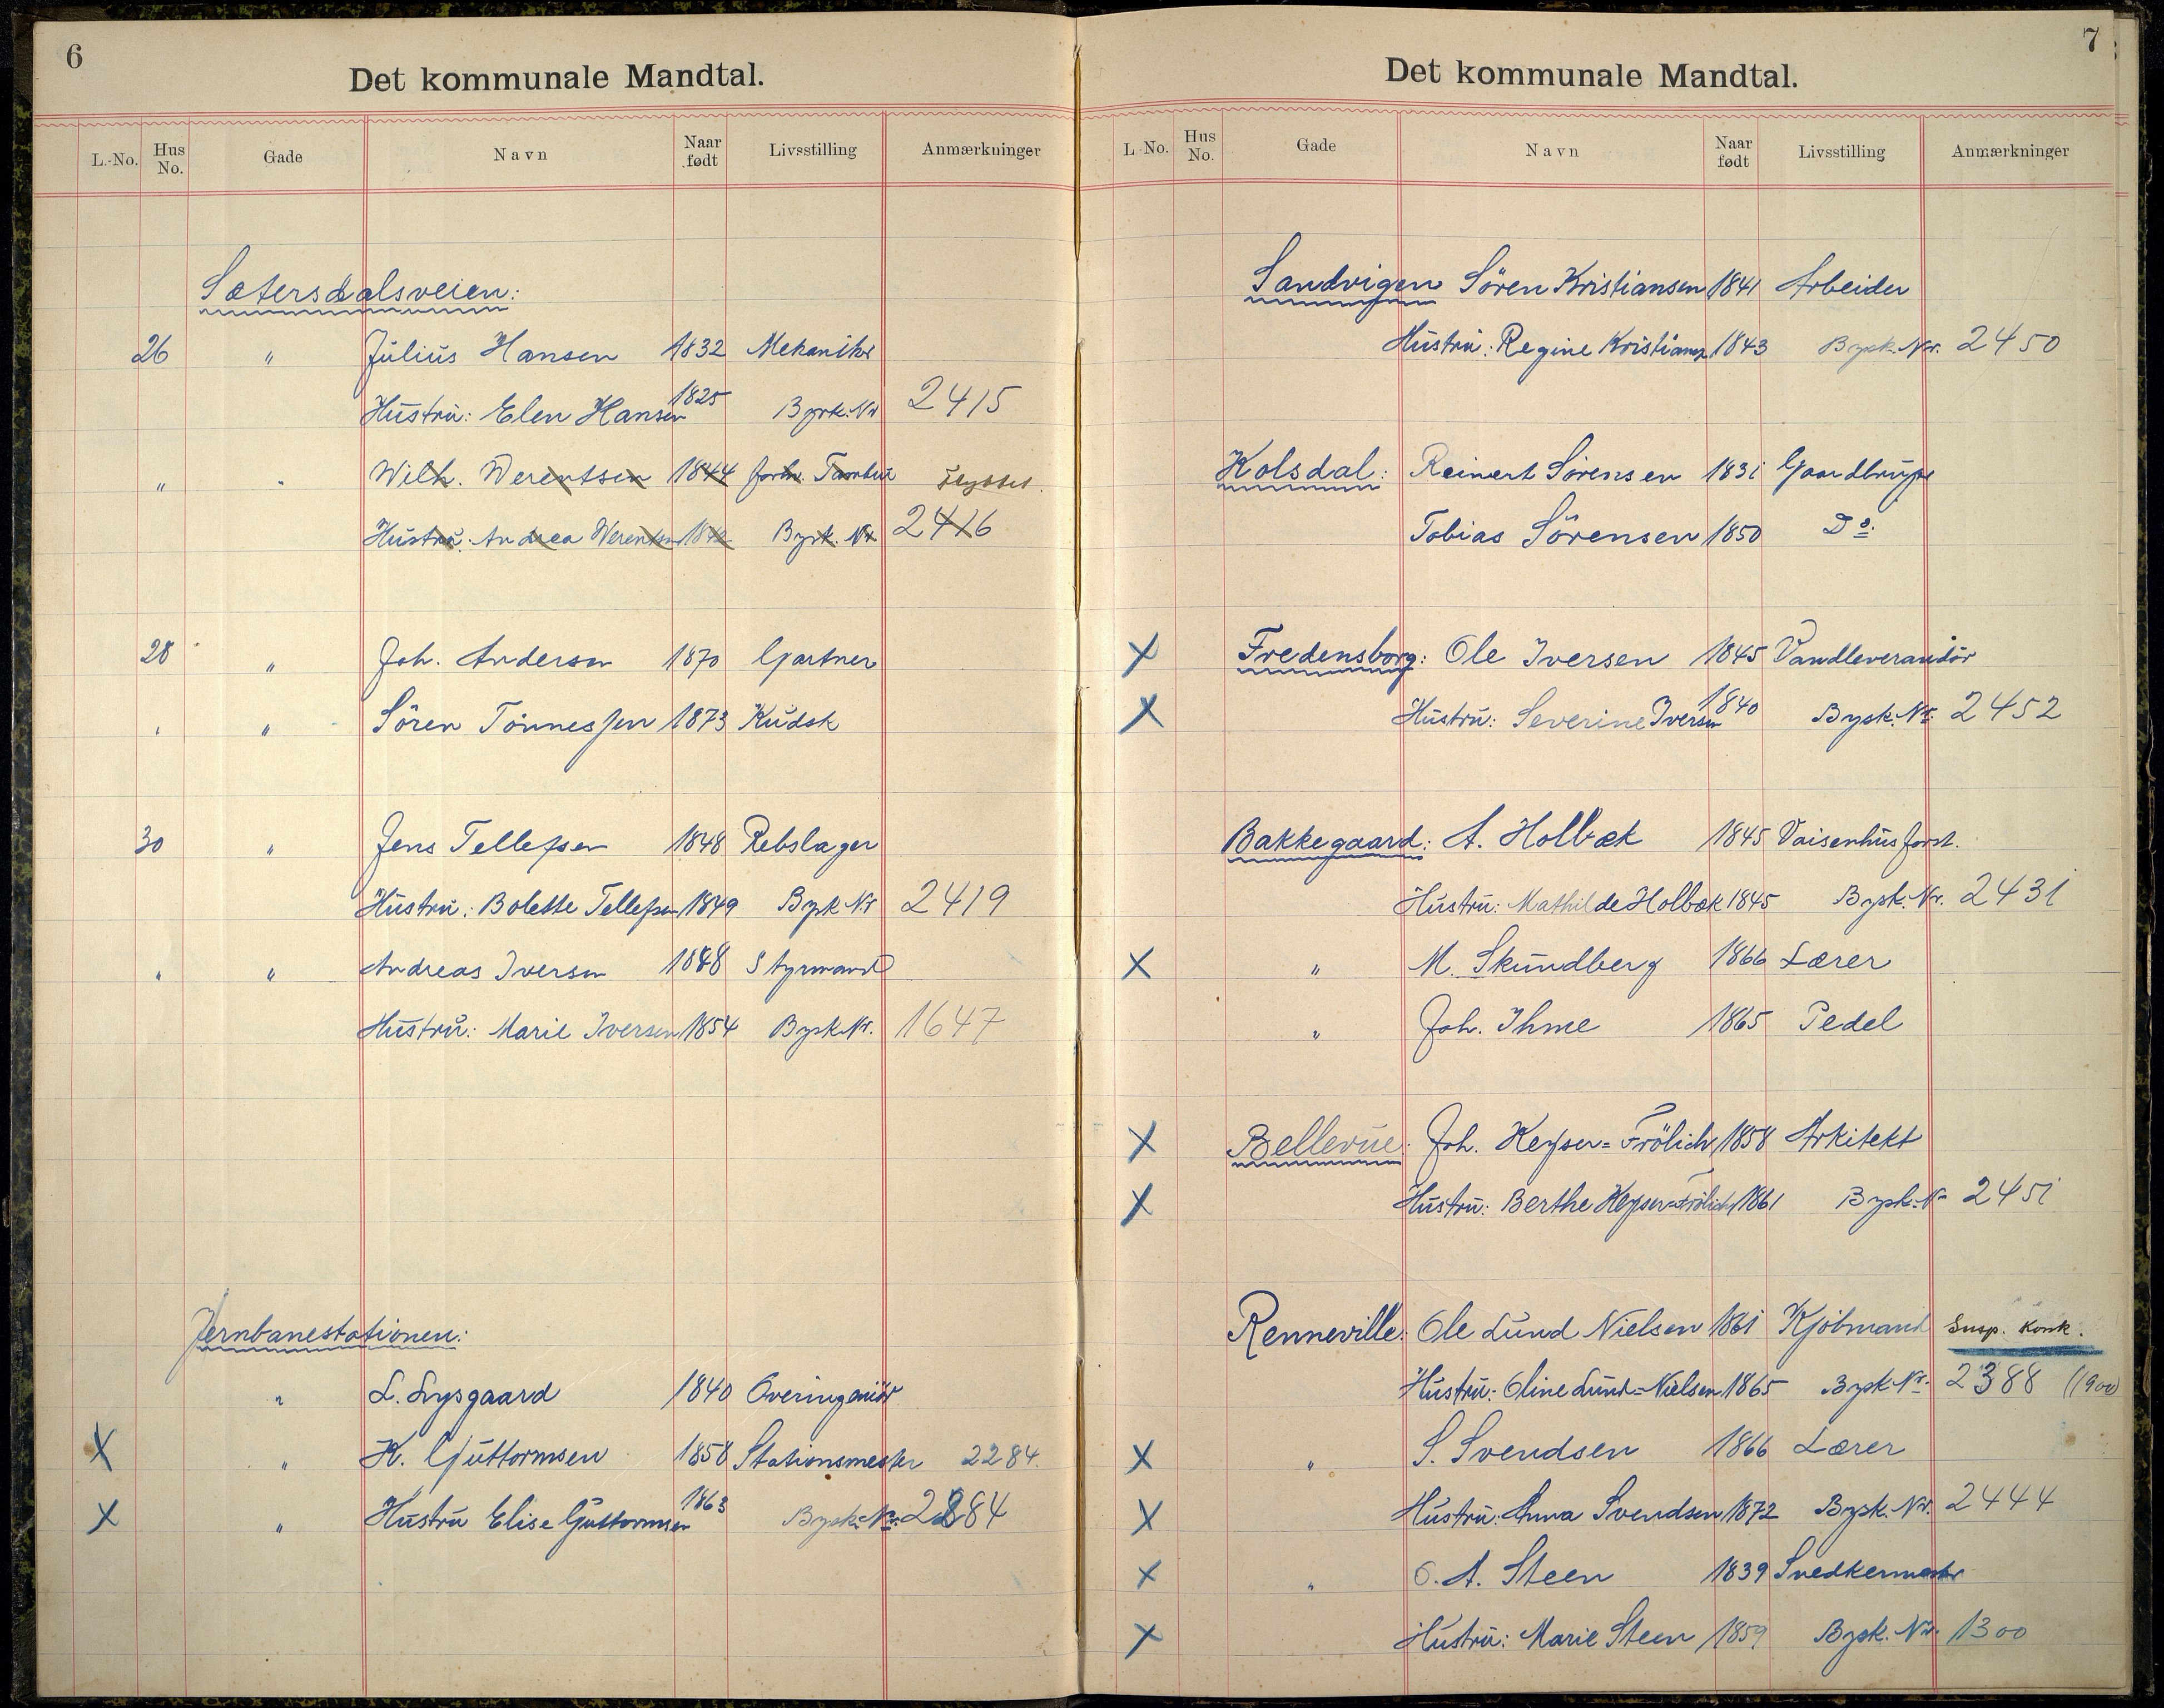 6
Det kommunale Mandtal.
L.-No. Hus No. Gade Navn Naar født Livsstilling Anmærkninger
Sætersdalsveien:
26 " Julius Hansen 1832 Mekaniker
Hustru: Elen Hansen 1825 Bysk. Nr 2415
" " Wilh. Werentsen 1844 forh. Tambur Flyttet.
Hustru: Andrea Werentsen Bysk. Nr 2416
28 " Joh. Andersen 1870 Gartner
" " Sören Tönnessen 1873 Kudsk
30 " Jens Tellefsen 1848 Rebslager
Hustru: Bolette Tellefsen 1849 Bysk Nr 2419
" " Andreas Iversen 1848 Styrmand
Hustru: Marie Iversen 1854 Bysk Nr. 1647
Jernbanestationen:
" L. Lysgaard 1840 Overingeniör
X " K. Guttormsen 1858 Stationsmester 2284.
X " Hustru Elise Guttormsen 1863 Bysk. Nr. 2284
7
Det kommunale Mandtal.
L No. Hus No. Gade Navn Naar født Livsstilling Anmærkninger
Sandvigen Sören Kristiansen 1841 Arbeider
Hustru: Regine Kristians 1843 Bysk. Nr. 2450
Kolsdal: Reinert Sörensen 1831 Gaardbruger
Tobias Sörensen 1850 Do.
X Fredensborg: Ole Iversen 1845 Vandleverandör
X Hustru: Severine Iversen 1840 Bysk. Nr. 2452
Bakkegaard: A. Holbæk 1845 Vaisenhusforst.
Hustru: Mathilde Holbæk 1845 Bysk. Nr. 2431
X " M. Skundberg 1866 Lærer
" Joh. Ihme 1865 Pedel
X Bellevue: Joh. Keyser=Frölich 1858 Arkitekt
X Hustru: Berthe Keyser=Frölich 1861 Bysk. Nr 2451
Renneville: Ole Lund Nielsen 1861 Kjöbmand Susp. Konk.
Hustru: Oline Lund=Nielsen 1865 Bysk Nr. 2388 (1900)
X " S. Svendsen 1866 Lærer
X Hustru: Anna Svendsen 1872 Bysk. Nr. 2444
X " O. A. Steen 1839 Snedkermester
X Hustru: Marie Steen 1859 Bysk. Nr. 1300